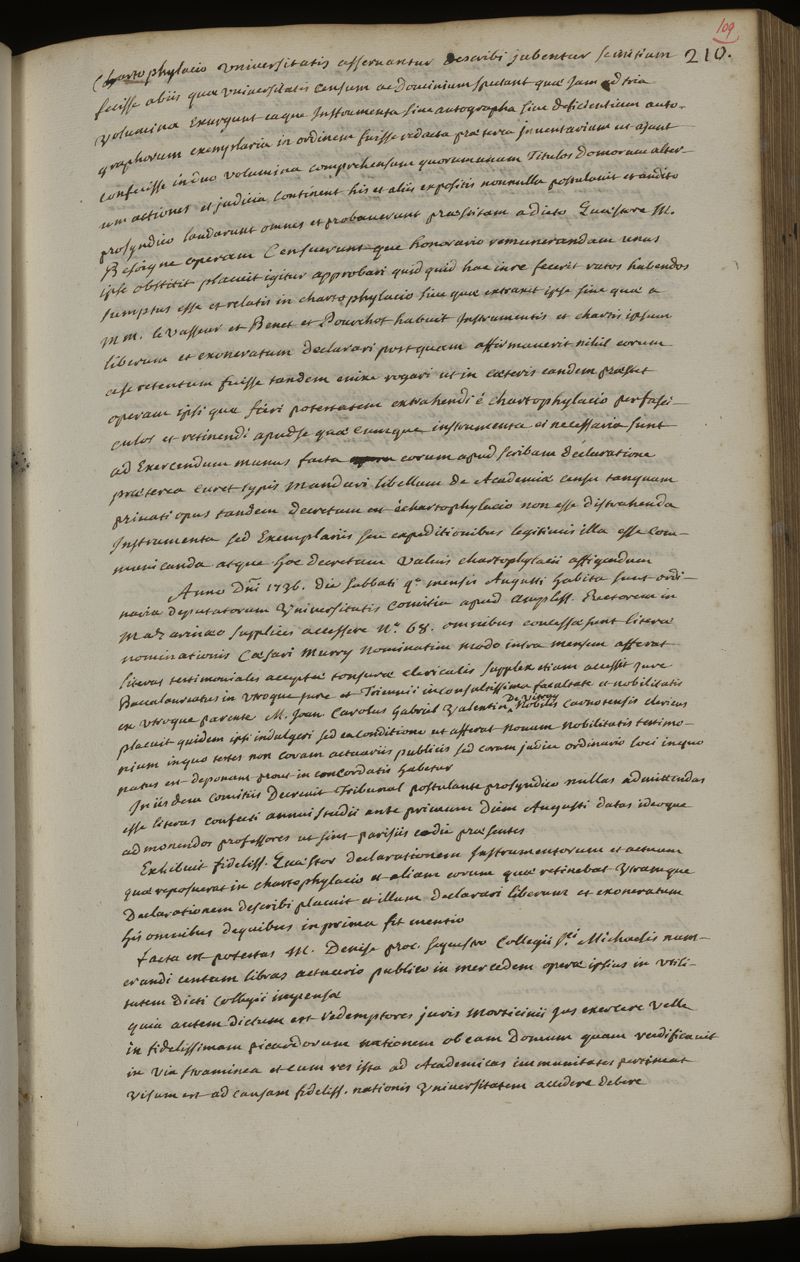 109
210.
Chartophylacio Universitatis asservantur describi jubentur secutium
fecisse ab iis quæ Universitatis censum ac Dominium spectant quæ jam ad tria
volumina Exurgunt eaque Instrumenta sive autographa sive deficientium auto-
graphorum exemplaria in ordinem fuisse redacta præterea inventarium ut ajunt
confecisse in duo volumina comprehensum quorum unum Titulos domorum alter
um actiones et judicia continent his et aliis expositis nonnulla postulavit et audito
prosyndico laudarunt omnes et probaverunt præstitam a dicto Quæstore M.
Besoigne operam Censuerunt que honorario remunerandam unus
ipse obstitit placuit igitur approbari quidquid hac in re fecerit ratos habendos
sumptus esse et relatis in chartophylacio sive quæ extraxit ipse sive quæ a
MM. le Vasseur et Benet et Pourchot habuit Instrumentis et chartis ipsum
liberum et exoneratum declarari postquam affirmaverit nihil eorum
a se retentum fuisse tandem enixe rogari ut in cæteris eandem præstet
operam ipsi que fieri potestatem extrahendi é chartophylacio per fasci-
culos et retinendi apud se quæcumque instrumenta ei necessaria sunt
ad Exercendum munus facta eorum apud scribam declaratione
præterea curet typis mandari libellum de Academiæ censu tanquam
privati opus tandem decretum est é chartophylacio non esse distrahenda
Instrumenta sed Exemplariis seu expeditionibus legitimis illa esse com-
municanda atque hoc decretum valvis chartophylacii affigendum
Anno Dni 1736. die sabbati 4a mensis Augusti habita sunt ordi-
naria deputatorum Universitatis comitia apud ampliss. Rectorem in
Mazarinæo supplices accessere No. 68. omnibus concessæ sunt literæ
nominationis Cæsari Murry nominatim modo intra mensem afferat
literas testimoniales acceptæ tonsuræ clericalis supplex etiam accessit jure
Baccalaureatus in utroque jure et Triennii in consultissima facultate et nobilitatis
ex utroque parente M. Joan Carolus Gabriel Valentin De Vitrey Nobilis Carnotensis clericus
placuit quidem ipsi indulgeri sed ea conditione ut afferat novum nobilitatis testimo-
nium in quo testes non coram actuariis publicis sed coram judice ordinario loci in quo
natus est deponant prout in concordatis habetur
In iisdem comitiis decrevit Tribunal postulante prosyndico nullas admittendas
esse literas confecti anni studii ante primum diem Augusti datas ideoque
admonendos professores ut sint parisiis ea die præsentes
Exhibuit fideliss. Quæstor declarationem Instrumentorum et actuum
quæ reposuerat in chartophylacio et aliam eorum quæ retinebat utramque
Declarationem describi placuit et illum declarari liberum et exoneratum
his omnibus de quibus in prima fit mentio
facta est potestas M. Denise proc. sequestro Collegii Sti Michaelis num-
erandi centum libras actuario publico in mercedem operæ ipsius in utili-
tatem dicti Collegii impensæ
quia autem dictum est redemptores juris morticinii jus exercere velle
in fidelissimam picardorum nationem ob eam Domum quam reædificavit
in via straminea et cum res ista ad Academicas immunitates pertineat
visum est ad causam fideliss. nationis Universitatem accedere debere